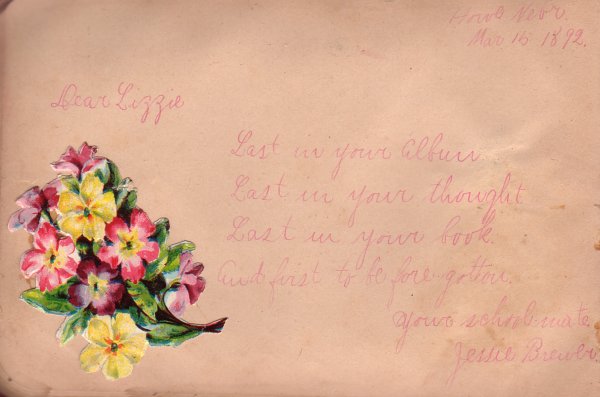 Howe Nebr.
Mar 15 1892.
Dear Lizzie
Last in your album
Last in your thought
Last in your book.
And first to be fore gotton
your school mate
Jessie Brewer